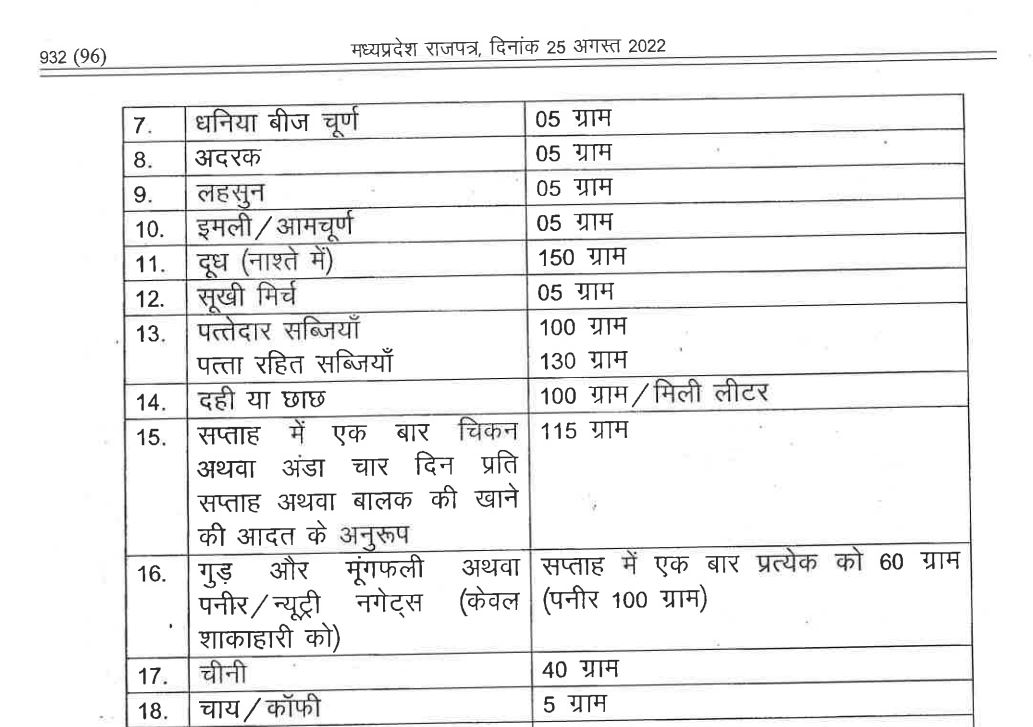 932 (96)
मध्यप्रदेश राजपत्र, दिनांक 25 अगस्त 2022
7. धनिया बीज चूर्ण 05 ग्राम
8. अदरक 05 ग्राम
9. लहसुन 05 ग्राम
10. इमली/आमचूर्ण 05 ग्राम
11. दूध (नाश्ते में) 150 ग्राम
12. सूखी मिर्च 05 ग्राम
13. पत्तेदार सब्जियाँ 100 ग्राम
पत्ता रहित सब्जियाँ 130 ग्राम
14. दही या छाछ 100 ग्राम/मिली लीटर
15. सप्ताह में एक बार चिकन 115 ग्राम
अथवा अंडा चार दिन प्रति
सप्ताह अथवा बालक की खाने
की आदत के अनुरूप
16. गुड़ और मूंगफली अथवा सप्ताह में एक बार प्रत्येक को 60 ग्राम
पनीर/न्यूट्री नगेट्स (केवल (पनीर 100 ग्राम)
शाकाहारी को)
17. चीनी 40 ग्राम
18. चाय/कॉफी 5 ग्राम